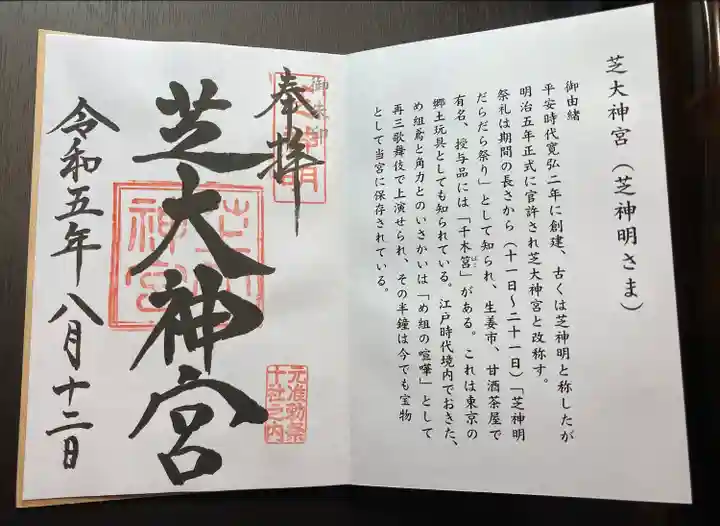 芝大神宮(芝神明さま)
御由緒
平安時代寛弘二年に創建、古くは芝神明と称したが
明治五年正式に官許され芝大神宮と改称す。
祭礼は期間の長さから(十一日～二十一日)「芝神明
だらだら祭り」として知られ、生姜市、甘酒茶屋で
有名、授与品には「千木筥」がある。これは東京の
郷土玩具としても知られている。江戸時代境内でおきた、
め組鳶と角力とのいさかいは「め組の喧嘩」として
再三歌舞伎で上演せられ、その半鐘は今でも宝物
として当宮に保存されている。
奉拝
芝大神宮
元准勅祭
十社之内
令和五年八月十二日